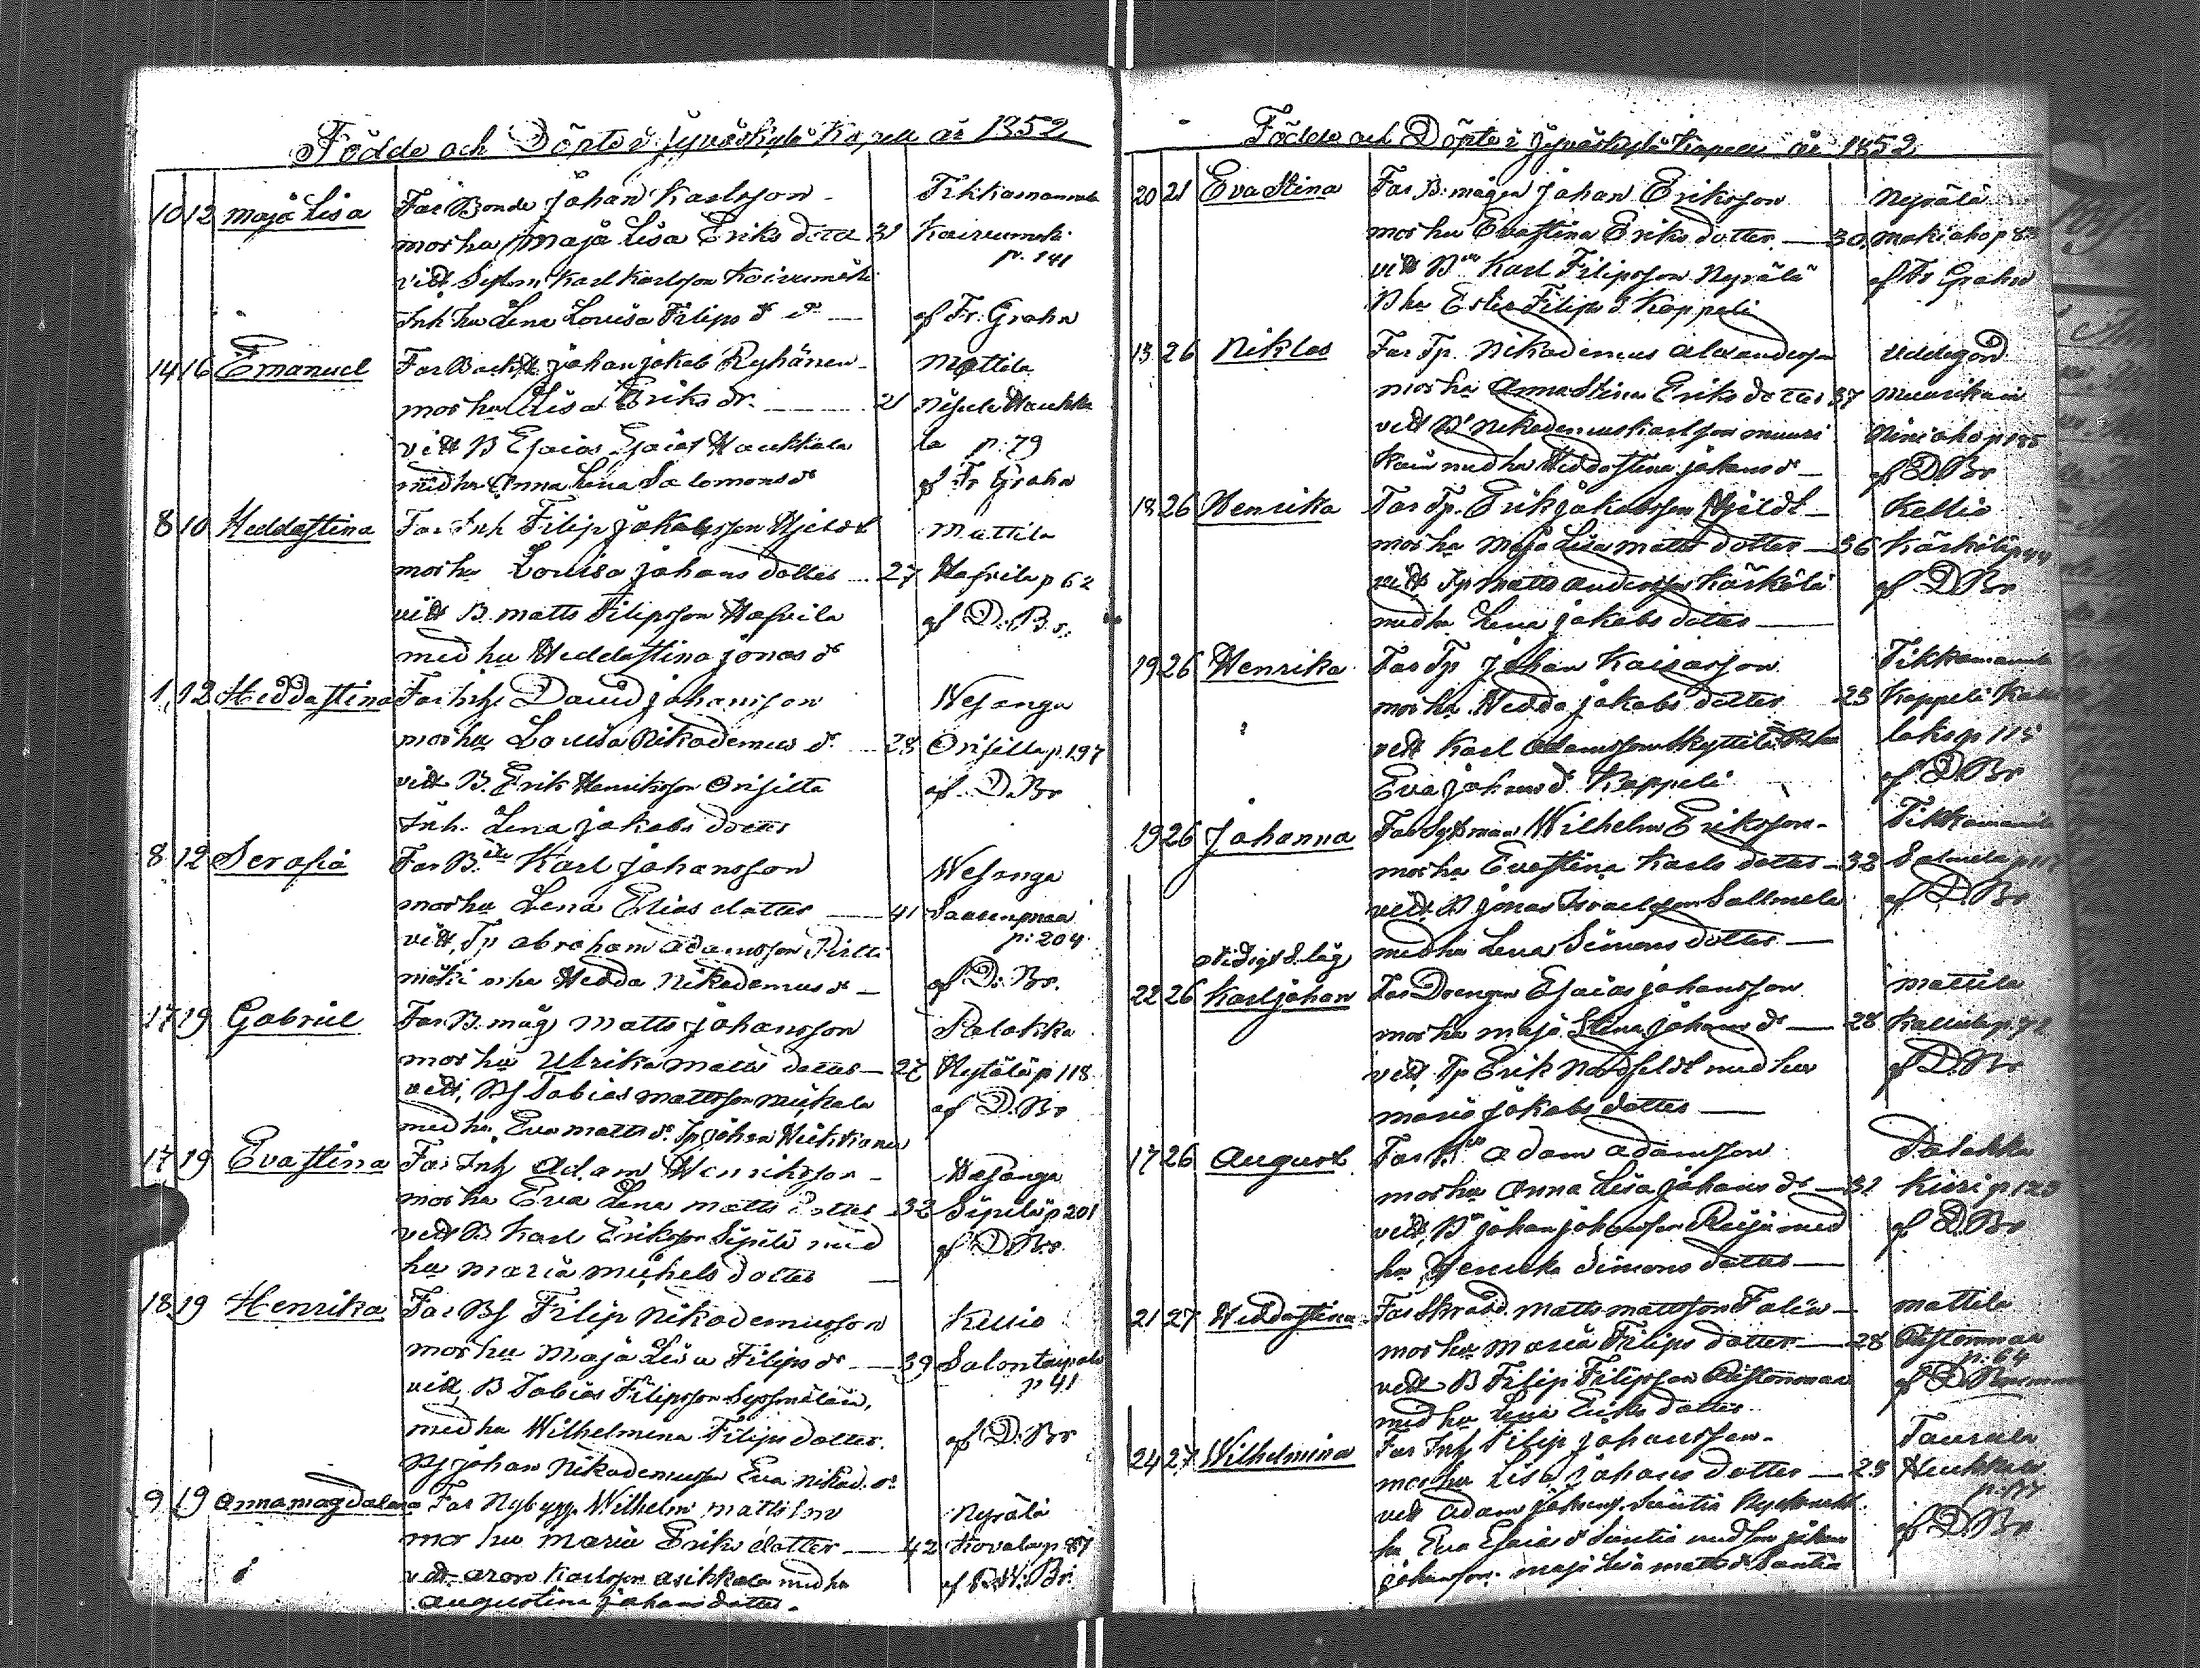 Födde och Döpte i Jyväskylä Kapell år 1852
10 12 Maja Lisa Far Bonde Johan Karlsson Tikkamannila
mor hu Maja Lisa Eriks dotter 31 Koivumäki
p. 141
vittn Karl Karlsson Koivumäki
Inh hu Lena Lovisa Filips dr af Fr. Grahn
14 16 Emanuel Far Johan Jakob Ryhänen Mattila
mor hu Lisa Eriks dr. 21 Nisula Haukka
vittn B Esaias Esaias Haukkala la p. 79
med hu Anna Lena Salomons dr af Fr Grahn
8 10 Heddastina Far Inh Filip Jakobsson Hjeldt Mattila
mor hu Lovisa Johans dotter 27 Hafvila p 62
vittn B. Matts Filipsson Hafvila af D. Br.
med hu Heddastina Jonas dr
1 12 Heddastina Far Inh David Johansson Wesanga
mor hu Lovisa Nikodemus dr. 28 Orisilla p. 197
vittn B. Erik Henriksson Orisilla af D. Br
Inh. Lena Jakobs dotter
8 12 Serafia Far B. Karl Johansson Wesanga
mor hu Lena Elias dotter 41 Saarenmaa
p. 204
vittn, Tp Abraham Adamsson Pirtti
mäki o hu Hedda Nikodemus dr af D. Br.
17 19 Gabriel Far B. måg Matts Johansson Palokka
mor hu Ulrika Matts dotter 27 Heftälä p 118
vittn, Bs Tobias Mattsson af D. Br
med hu Eva Matts dr. Tp Johan
17 19 Evastina Far Inh Adam Henriksson Wesanga
mor hu Eva Lena Matts dotter 32 Sipilä p 201
vittn B Karl Eriksson Sipilä med af D. Br.
hu Maria Michels dotter
18 19 Henrika Far Bs Filip Nikodemusson Keljo
mor hu Maja Lisa Filips dr 39 Salontaipale
p 41
vittn, B Tobias Filipsson
med hu Wilhelmina Filips dotter. af D. Br
Bs Johan Nikodemusson Eva Nikod. dr
9 19 Anna Magdalena Far Nybygg. Wilhelm Mattsson Nyrälä
mor hu Maria Eriks dotter 42 Kovala p 87
vittn Aron Karlsson Asikkala med hu af
Augustina Johans dotter.
Födde och Döpte i Jyväskylä Kapell år 1852
20 21 Eva Stina Far B. mågen Johan Eriksson Nyrälä
mor hu Evastina Eriks dotter 30 Mäkiaho p 83
vittn Bn Karl Filipsson Nyrälä af Fr Grahn
B hu Ester Filips d. Koppeli
13 26 Niklas Far Tp. Nikodemus Alexandersson
mor hu Anna Stina Eriks dotter 37 Muurikain
vittn B Nikodemus Karlsson Muuri Niniaho p 185
kain med hu Heddastina Johans dr af D. Br
18 26 Henrika Far Tp. Erik Jakobsson Hjeldt Keljo
mor hu Maja Lisa Matts dotter 36 Kärkölä p
vittn Tp Matts Andersson Kärkölä af D. Br
med hu Lena Jakobs dotter
19 26 Henrika Far Tp Johan Kaisasson Tikkamannila
mor hu Hedda Jakobs dotter 23 Koppeli
vittn Karl Adamsson p 115
Eva Johans d. Koppeli af D. Br
19 26 Johanna Far Wilhelm Eriksson Tikkamannila
mor hu Evastina Karls dotter 32 Salmela p
vittn B Jonas Israelsson Sallmela af D. Br
med hu Lena Simons dotter
22 26 Karl Johan Far Drengen Esaias Johansson Mattila
mor hu Maja Stina Johans dr 28
vittn Tp Erik Nordfeldt med hu af D. Br
Maria Jakobs dotter
17 26 August Far Bn Adam Adamsson Palokka
mor hu Anna Lisa Johans dr 32 Kirri p
vittn, Bn Johan Johansson med af D. Br
hu Henrika Simons dotter
21 27 Heddastina Far Skrädd. Matts Mattsson Falin Mattila
mor hu Maria Filips dotter 28 Ristonmaa
p. 64
vittn B Filip Filipsson Ristonmaa
med hu Lena Eriks dotter.
24 27 Wilhelmina Far Inh Filip Johansson Taurula
mor hu Lisa Johans dotter 23
vittn Adam Johans. Säntis
hu Eva Esaias dr Säntis med Johan af D. Br
Johansson. Maja Lisa Matts dr Säntis